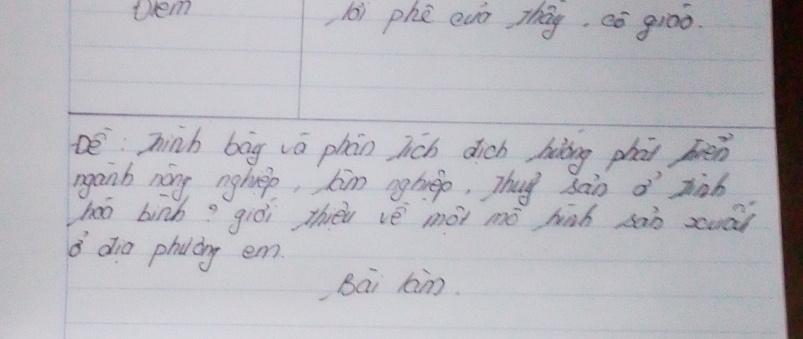 Điểm
lời phê của thầy, cô giáo.
Đề: Trình bày và phân tích định hướng phát triển
ngành nông nghiệp, lâm nghiệp, thuỷ sản ở tỉnh
hoà bình? giới thiệu về một mô hình sản xuất
ở địa phương em.
Bài làm.